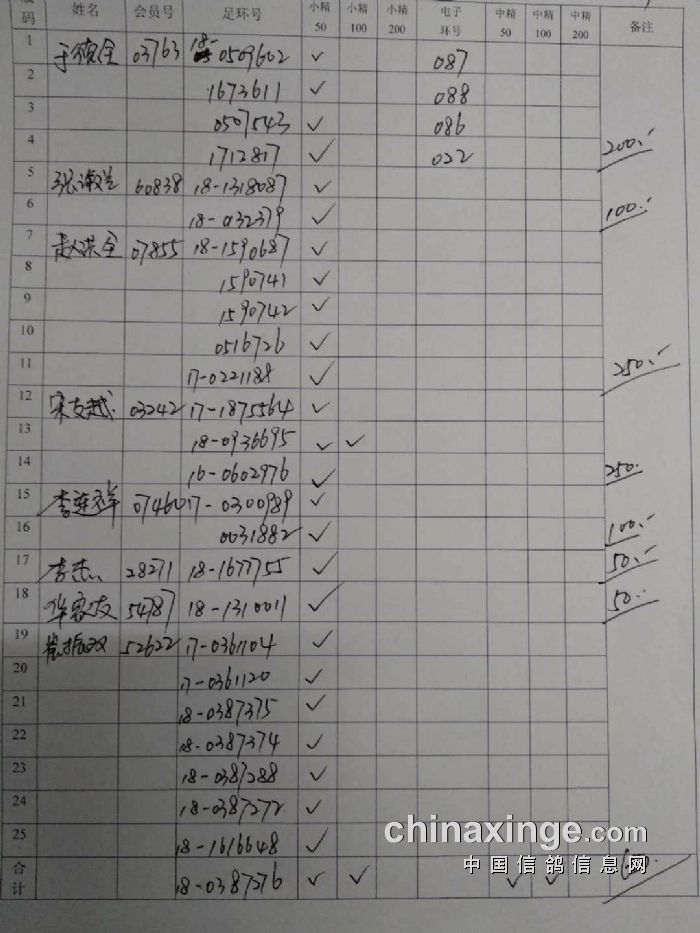 码 姓名 会员号 足环号 小精50 小精100 小精200 电子环号 中精50 中精100 中精200 备注
1 于 全 03763 18-0509602 ✓ 087
2 1673611 ✓ 088
3 0507543 ✓ 086
4 1712817 ✓ 022 200.-
5 张淑兰 60838 18-1318087 ✓
6 18-0132379 ✓ 100.-
7 赵洪全 07855 18-1590687 ✓
8 1590741 ✓
9 1590742 ✓
10 0516726 ✓
11 17-0221188 ✓ 250.-
12 宋友越 03242 17-1875564 ✓
13 18-0936695 ✓ ✓
14 16-0602976 ✓ 250.
15 李连祥 07460 17-0300989 ✓
16 0031882 ✓ 100.-
17 李杰 28271 18-1677755 ✓ 50.-
18 华家友 54787 18-1310011 ✓ 50.-
19 52622 17-0361104 ✓
20 17-0361120 ✓
21 18-0387375 ✓
22 18-0387374 ✓
23 18-0387288 ✓
24 18-0387272 ✓
25 18-1616648 ✓
合计 18-0387276 ✓ ✓ ✓ ✓
chinaxinge.com
中国信鸽信息网